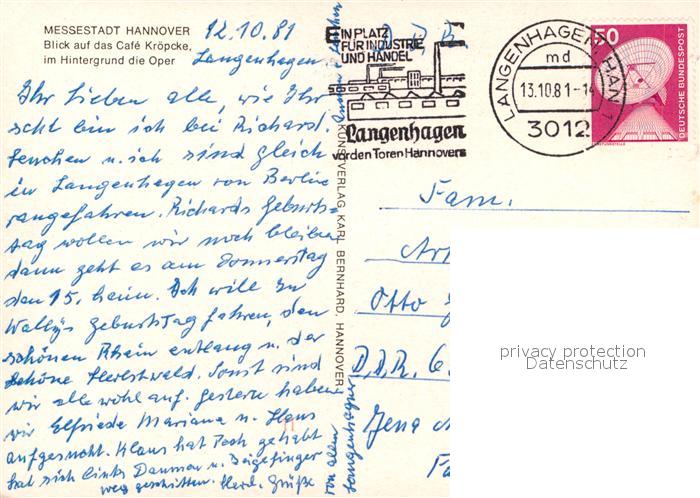 MESSESTADT HANNOVER
Blick auf das Café Kröpcke,
im Hintergrund die Oper
12.10.81
Langenhagen
Ihr Lieben alle, wie Ihr
seht bin ich bei Richard.
u. ich sind gleich
in Langenhagen von Berlin
rangefahren. Richards Geburts-
tag wollen wir noch bleiben
dann geht es am Donnerstag
den 15. heim. Ich will zu
Wallys Geburtstag fahren, den
schönen Rhein entlang u. der
schöne Herbstwald. Sonst sind
wir alle wohl auf. Gestern haben
wir Elfriede Mariana u. Klaus
aufgesucht. Klaus hat Pech gehabt
hat sich links Daumen u. Zeigefinger
weg geschnitten. Herzl. Grüße
von allen
Langenhagener
KUNSTVERLAG KARL BERNHARD, HANNOVER
EIN PLATZ
FÜR INDUSTRIE
UND HANDEL
Langenhagen
vor den Toren Hannovers
D.D.R.
LANGENHAGEN, HAN 1
md
13.10.81-14
3012
50
DEUTSCHE BUNDESPOST
Fam.
Otto
D.D.R. 6
Jena
privacy protection
Datenschutz